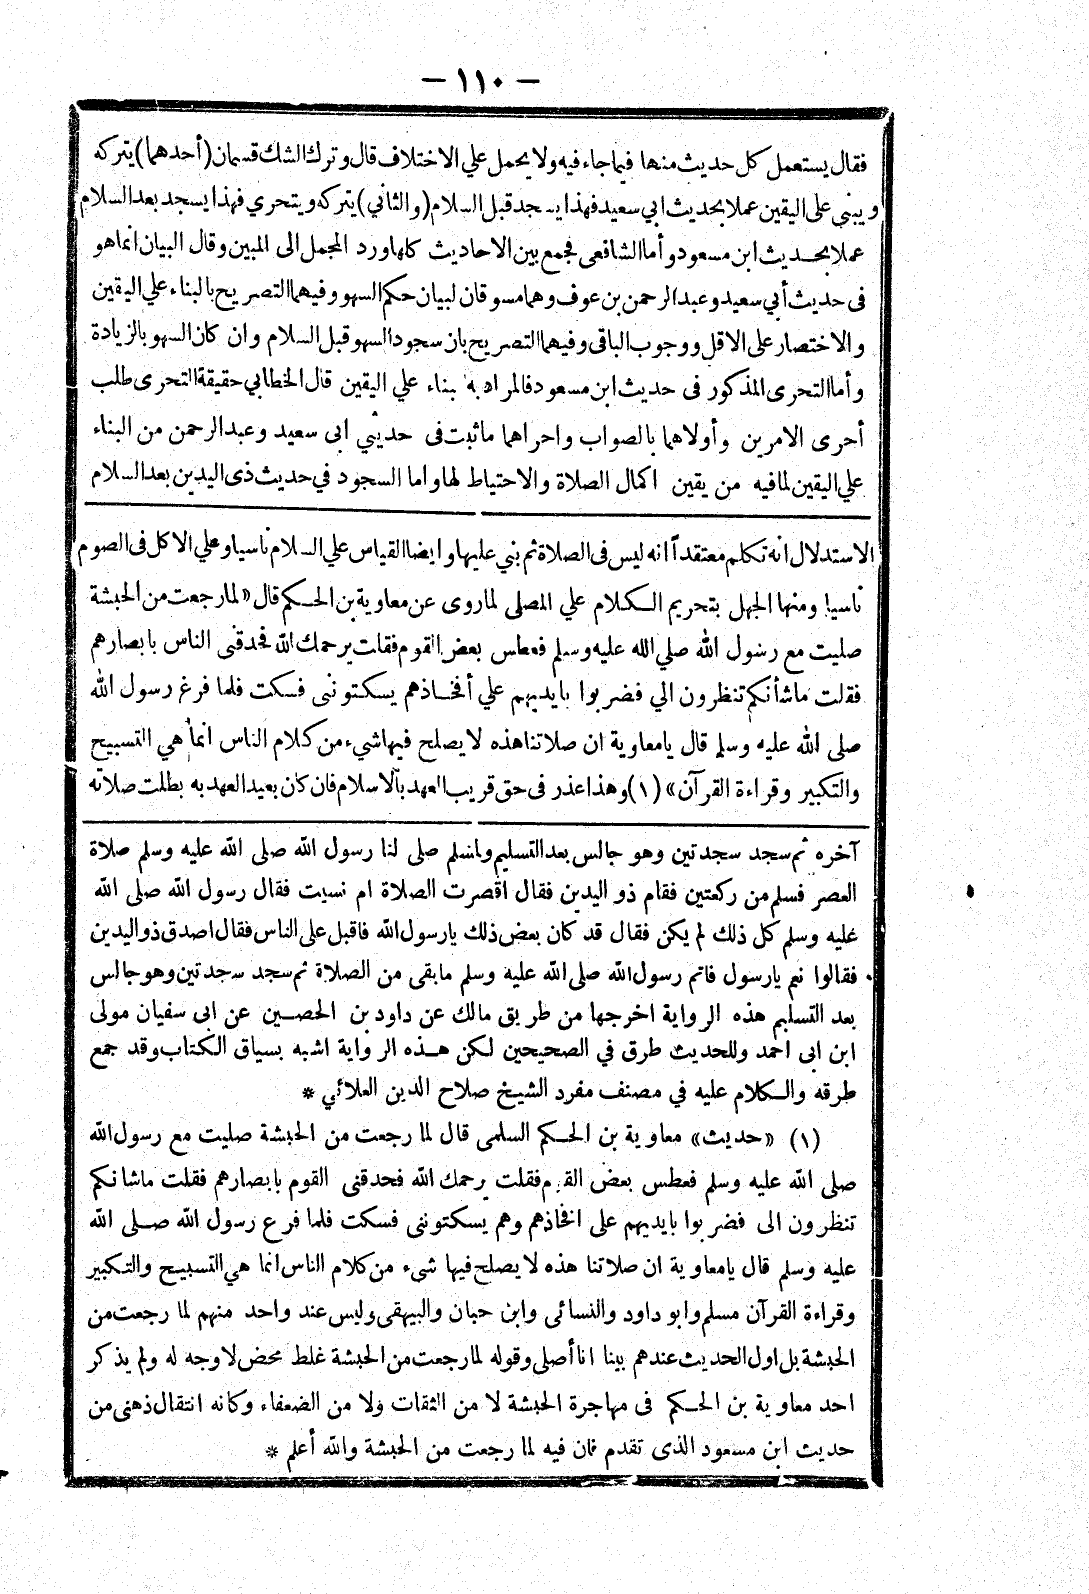 — ١١٠ —
فقال يستعمل كل حديث منها فيما جاء فيه ولا يحمل علي الاختلاف قال وترك الشك قسمان (أحدهما) يتركه
ويبني على اليقين عملا بحديث ابي سعيد فهذا يسجد قبل السلام (والثاني) يتركه ويتحري فهذا يسجد بعد السلام
عملا بحديث ابن مسعود وأما الشافعى فجمع بين الاحاديث كلها ورد المجمل الى المبين وقال البيان انما هو
فى حديث أبي سعيد وعبد الرحمن بن عوف وهما مسوقان لبيان حكم السهو وفيهما التصريح بالبناء علي اليقين
والاختصار على الاقل ووجوب الباقى وفيهما التصريح بان سجود السهو قبل السلام وان كان السهو بالزيادة
وأما التحرى المذكور فى حديث ابن مسعود فالمراد به بناء علي اليقين قال الخطابي حقيقة التحرى طلب
أحرى الامرين وأولاهما بالصواب واحراهما ما ثبت فى حديثي ابى سعيد وعبد الرحمن من البناء
علي اليقين لما فيه من يقين اكمال الصلاة والاحتياط لها واما السجود في حديث ذى اليدين بعد السلام
الاستدلال انه تكلم معتقداً انه ليس فى الصلاة ثم بني عليها وايضا القياس علي السلام ناسيا وعلي الاكل فى الصوم
ناسيا ومنها الجهل بتحريم الكلام علي المصلى لما روى عن معاوية بن الحكم قال «لما رجعت من الحبشة
صليت مع رسول الله صلي الله عليه وسلم فعطس بعض القوم فقلت يرحمك الله فحدقنى الناس بابصارهم
فقلت ما شأنكم تنظرون الي فضربوا بايديهم علي أفخاذهم يسكتوننى فسكت فلما فرغ رسول الله
صلى الله عليه وسلم قال يا معاوية ان صلاتنا هذه لا يصلح فيها شيء من كلام الناس انما هي التسبيح
والتكبير وقراءة القرآن» (١) وهذا عذر فى حق قريب العهد بالاسلام فان كان بعيد العهد به بطلت صلاته
آخره ثم سجد سجدتين وهو جالس بعد التسليم ولمسلم صلى لنا رسول الله صلى الله عليه وسلم صلاة
العصر فسلم من ركعتين فقام ذو اليدين فقال اقصرت الصلاة ام نسيت فقال رسول الله صلى الله
عليه وسلم كل ذلك لم يكن فقال قد كان بعض ذلك يا رسول الله فاقبل على الناس فقال اصدق ذو اليدين
فقالوا نعم يا رسول فاتم رسول الله صلى الله عليه وسلم ما بقى من الصلاة ثم سجد سجدتين وهو جالس
بعد التسليم هذه الرواية اخرجها من طريق مالك عن داود بن الحصين عن ابى سفيان مولى
ابن ابى احمد وللحديث طرق في الصحيحين لكن هذه الرواية اشبه بسياق الكتاب وقد جمع
طرقه والكلام عليه في مصنف مفرد الشيخ صلاح الدين العلائي *
(١) «حديث» معاوية بن الحكم السلمى قال لما رجعت من الحبشة صليت مع رسول الله
صلى الله عليه وسلم فعطس بعض القوم فقلت يرحمك الله فحدقنى القوم بابصارهم فقلت ما شانكم
تنظرون الى فضربوا بايديهم على افخاذهم وهم يسكتوننى فسكت فلما فرغ رسول الله صلى الله
عليه وسلم قال يا معاوية ان صلاتنا هذه لا يصلح فيها شىء من كلام الناس انما هي التسبيح والتكبير
وقراءة القرآن مسلم وابو داود والنسائى وابن حبان والبيهقى وليس عند واحد منهم لما رجعت من
الحبشة بل اول الحديث عندهم بينا انا أصلى وقوله لما رجعت من الحبشة غلط محض لا وجه له ولم يذكر
احد معاوية بن الحكم فى مهاجرة الحبشة لا من الثقات ولا من الضعفاء وكانه انتقال ذهنى من
حديث ابن مسعود الذى تقدم فان فيه لما رجعت من الحبشة والله أعلم *